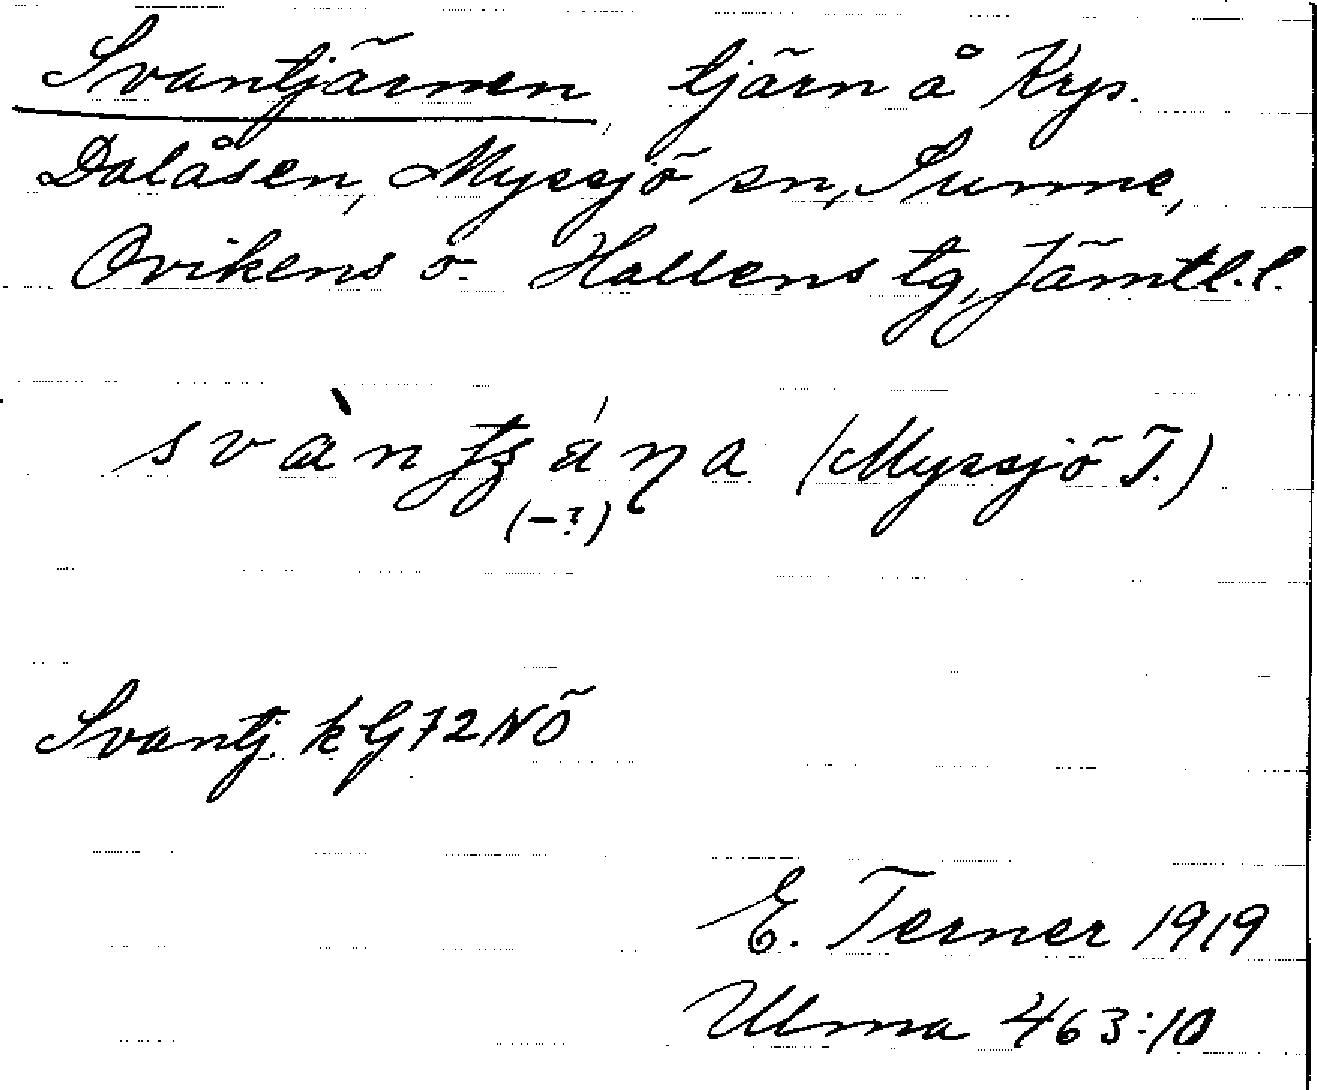 Svantjärnen, tjärn å Krp.
Dalåsen, Myssjö sn, Sunne,
Ovikens o. Hallens tg, Jämtl.l.
(Myssjö T.)
(-?)
Svantj. k G72NÖ
E. Terner 1919
Ulma 463:10